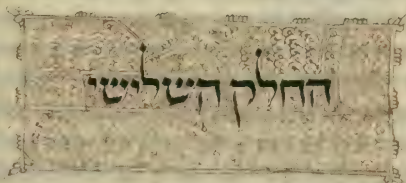 החלק השלישי